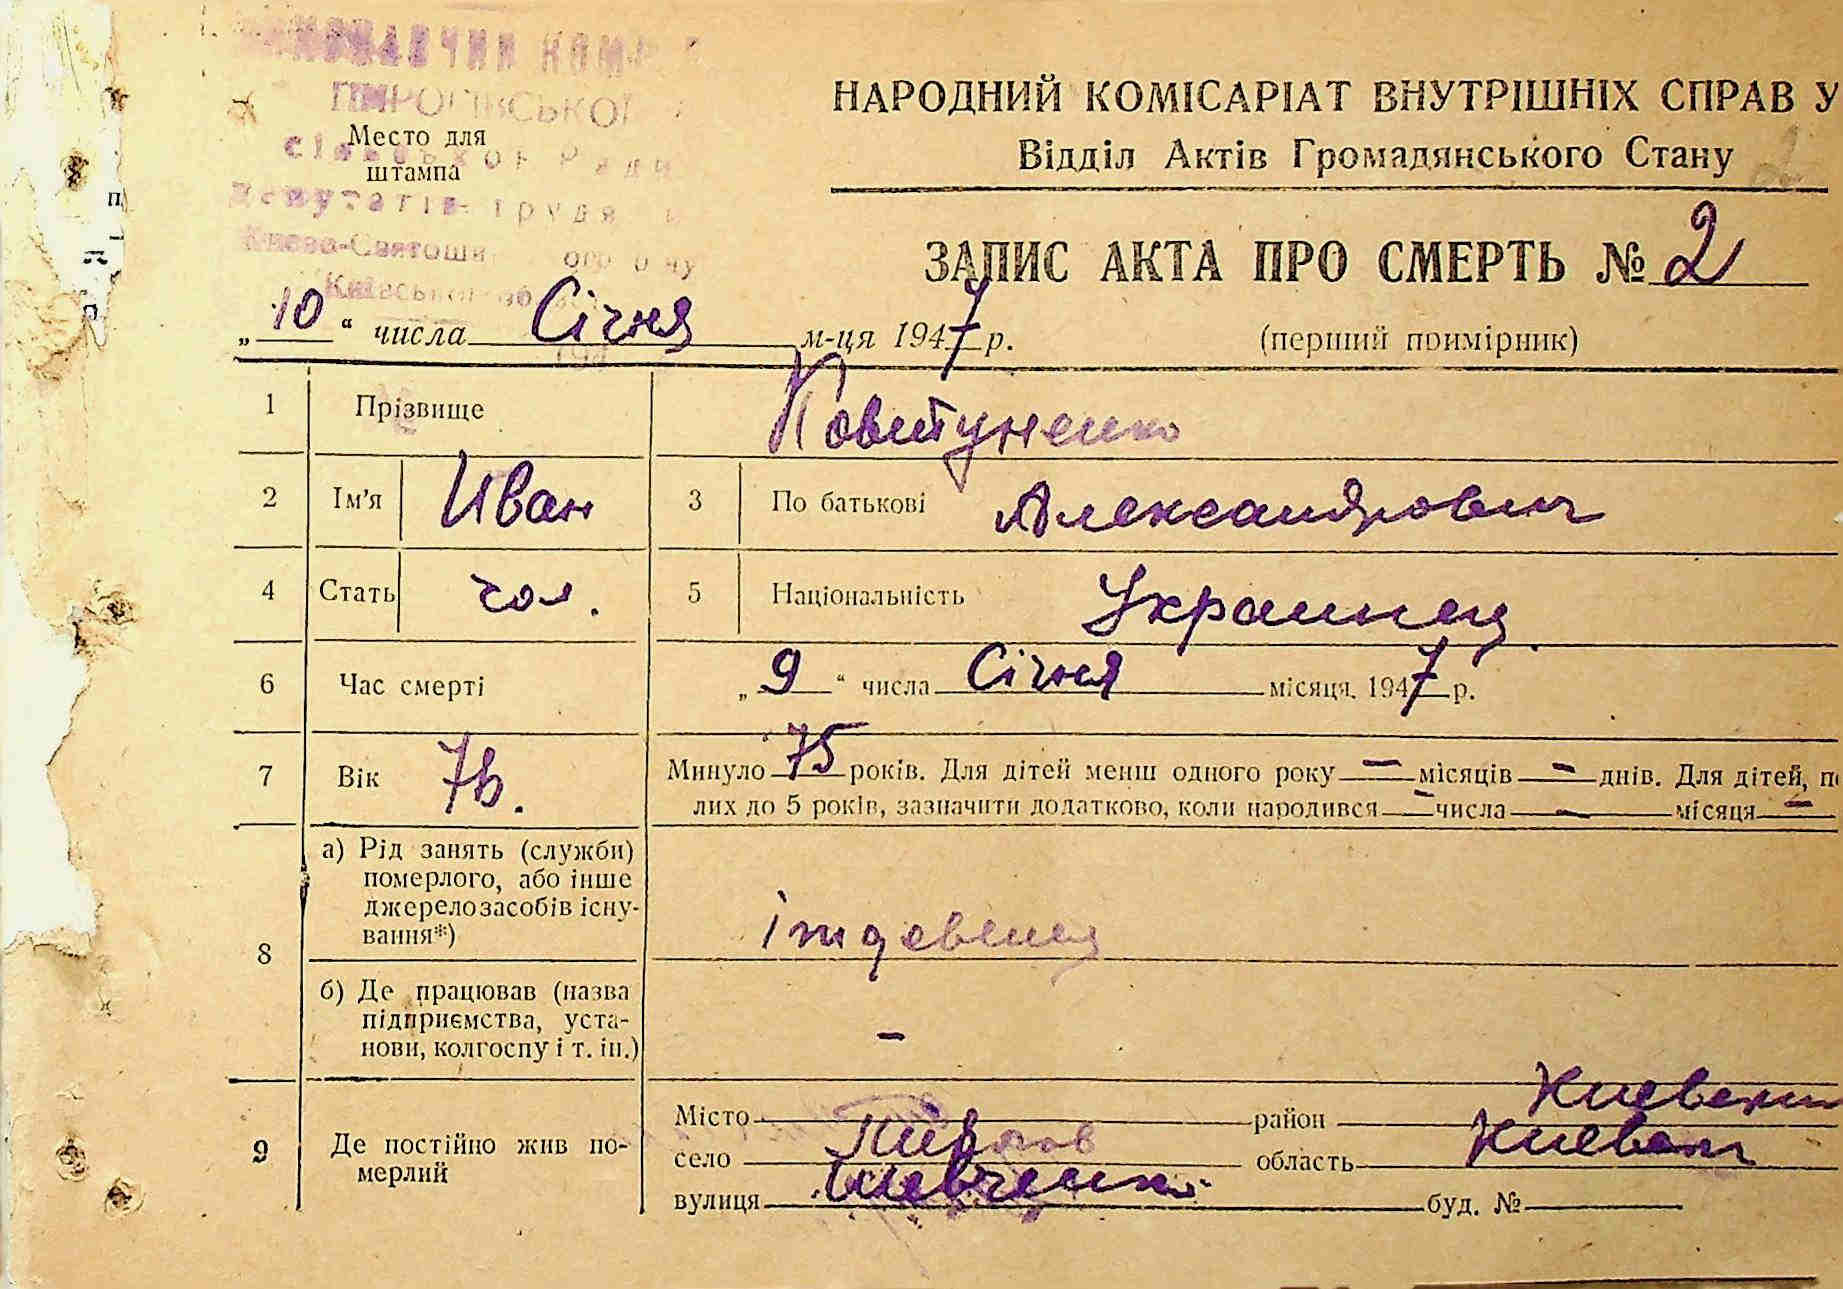 ПИРОГІВСЬКОЇ
Место для
штампа
Києво-Святоши
Київської
НАРОДНИЙ КОМІСАРІАТ ВНУТРІШНІХ СПРАВ У
Відділ Актів Громадянського Стану
ЗАПИС АКТА ПРО СМЕРТЬ № 2
„10“ числа Січня м-ця 1947 р.
(перший примірник)
1 Прізвище Ковтуненко
2 Ім'я Иван 3 По батькові Александрович
4 Стать чол. 5 Національність Украинец
6 Час смерті „9“ числа Січня місяця. 1947 р.
7 Вік Минуло 75 років. Для дітей менш одного року — місяців — днів. Для дітей, п
лих до 5 років, зазначити додатково, коли народився — числа — місяця —
8 а) Рід занять (служби)
померлого, або інше
джерело засобів існу-
вання*)
б) Де працював (назва
підприємства, уста-
нови, колгоспу і т. ін.)
-
9 Де постійно жив по-
мерлий
Місто район Киевск
село Пирогов область Киевск
вулиця Шевченко буд. №